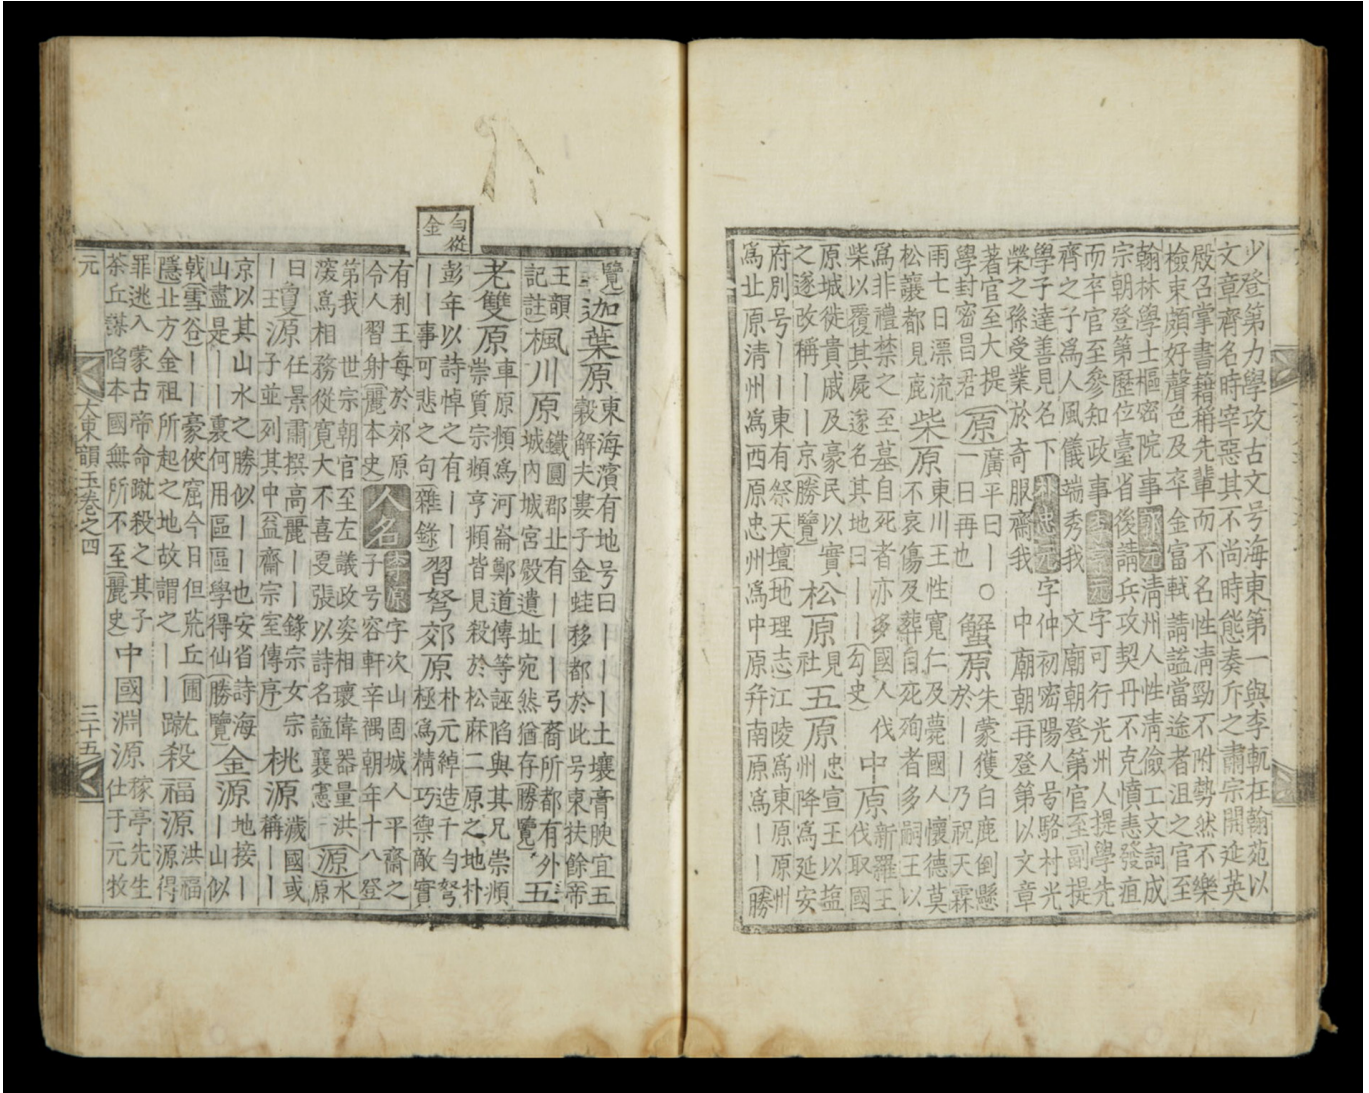 少登第力學攻古文号海東第一與李軏在翰苑以
文章齊名時宰惡其不尚時態奏斥之肅宗開延英
殿召掌書籍稱先輩而不名性淸勁不附勢然不樂
檢束頗好聲色及卒金富軾請謚當途者沮之官至
翰林學士樞密院事郭元淸州人性淸儉工文詞成
宗朝登第歷位臺省後請兵攻契丹不克憤恚發疽
而卒官至參知政事李元字可行光州人提學先
齊之子爲人風儀端秀我 文廟朝登第官至副提
學子達善見名下朴忠元字仲初密陽人号駱村光
榮之孫受業於奇服齋我 中廟朝再登第以文章
著官至大提
學封密昌君
原
廣平曰丨○
一日再也
蟹原
朱蒙獲白鹿倒懸
於丨丨乃祝天霖
雨七日漂流
松讓都見鹿
柴原
東川王性寬仁及薨國人懷德莫
不哀傷及葬自死殉者多嗣王以
爲非禮禁之至墓自死者亦多國人伐
柴以覆其屍遂名其地曰丨丨勾史
中原
新羅王
伐取國
原城徙貴戚及豪民以實
之遂改稱丨丨京勝覽
松原
見
社
五原
忠宣王以塩
州降爲延安
府別号丨丨東有祭天壇地理志江陵爲東原原州
爲北原淸州爲西原忠州爲中原幷南原爲丨丨勝
覽
迦葉原
東海濱有地号曰丨丨丨土壤膏腴宜五
穀解夫婁子金蛙移都於此号東扶餘帝
王韻
記註
楓川原
鐵圓郡北有丨丨丨弓裔所都有外
城內城宮殿遺址宛然猶存勝覽
五
老雙原
車原頫爲河崙鄭道傳等誣陷與其兄崇頫
崇質宗頫亨頫皆見殺於松麻二原之地朴
彭年以詩悼之有丨丨
丨丨事可悲之句雜錄
習弩郊原
朴元綽造千勻弩
極爲精巧禦敵實
勻從
金
有利王每於郊原
令人習射麗本史
人名
李原
字次山固城人平齋之
子号容軒辛禑朝年十八登
第我 世宗朝官至左議政姿相瓌偉器量洪
深爲相務從寬大不喜更張以詩名謚襄憲
源
水
原
曰
丨
瓊源
任景肅撰高麗丨丨錄宗女宗
子並列其中益齋宗室傳序
桃源
濊國或
稱丨丨
京以其山水之勝似丨丨也安省詩海
山盡是丨丨裏何用區區學得仙勝覽
金源
地接丨丨
丨山似
戟雪谷丨丨豪俠窟今日但荒丘圃
隱北方金祖所起之地故謂之丨丨
蹴殺
福源
洪福
源得
罪逃入蒙古帝命蹴殺之其子
茶丘謀陷本國無所不至麗史
中國淵源
稼亭先生
仕于元牧
元
大東韻玉卷之四
三十五